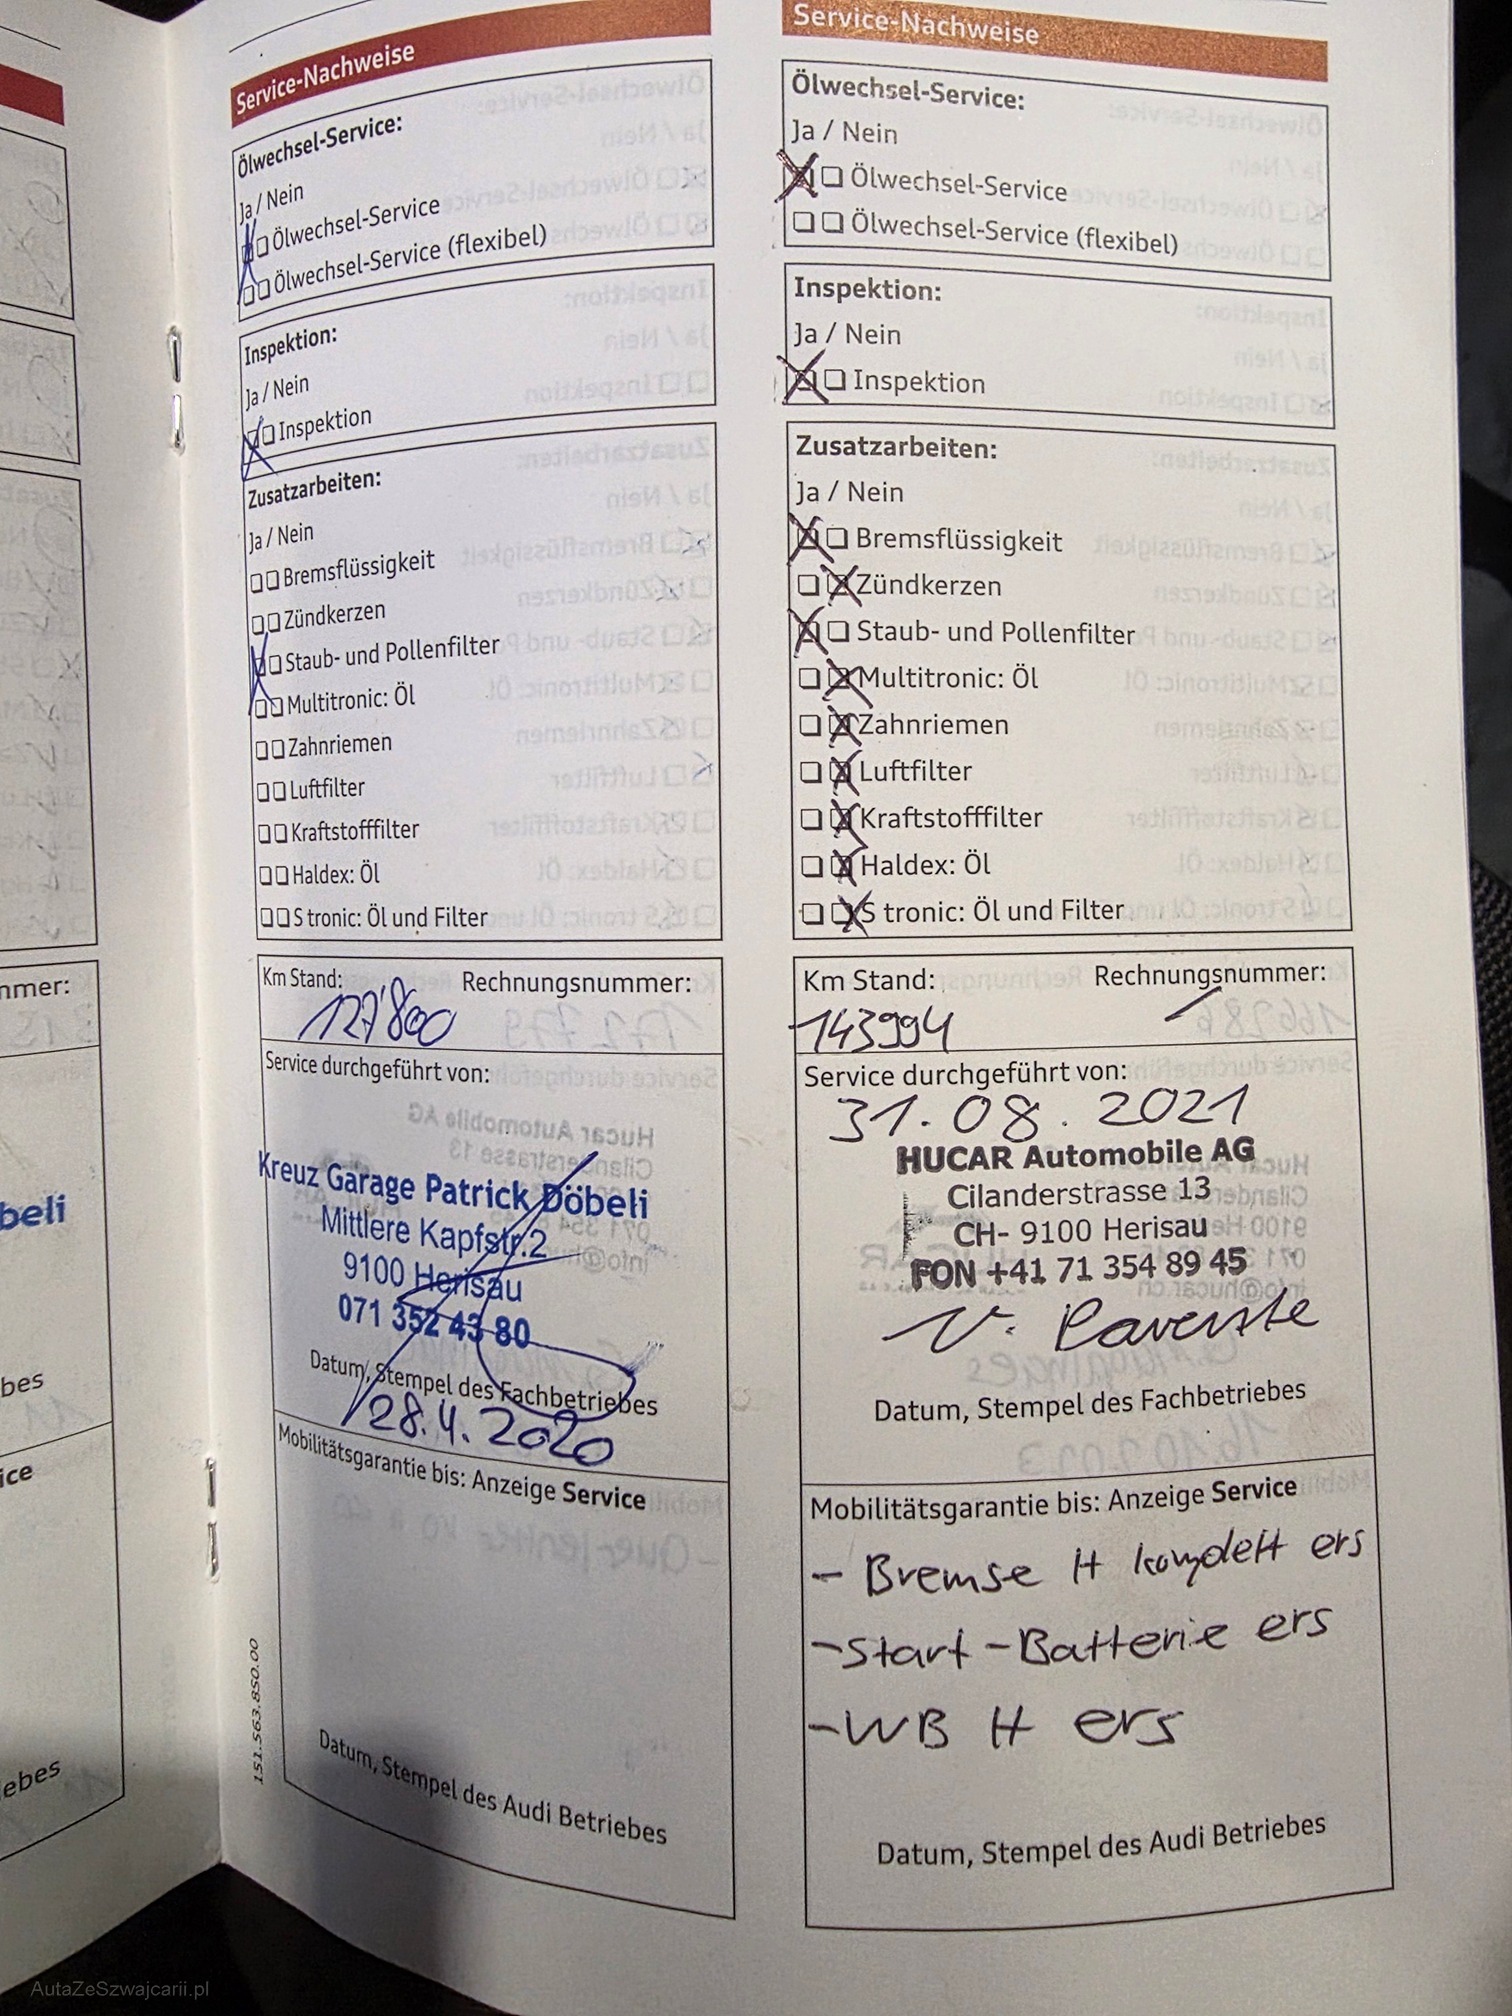 nmer:
beli
bes
ice
ebes
Service-Nachweise
Ölwechsel-Service:
Ja / Nein
Ölwechsel-Service
Ölwechsel-Service (flexibel)
Inspektion:
Ja / Nein
Inspektion
Zusatzarbeiten:
Ja / Nein
Bremsflüssigkeit
Zündkerzen
Staub- und Pollenfilter
Multitronic: Öl
Zahnriemen
Luftfilter
Kraftstofffilter
Haldex: Öl
S tronic: Öl und Filter
Km Stand: Rechnungsnummer:
127'800
Service durchgeführt von:
Kreuz Garage Patrick Döbeli
Mittlere Kapfstr.2
9100 Herisau
071 352 43 80
Datum, Stempel des Fachbetriebes
28.4.2020
Mobilitätsgarantie bis: Anzeige Service
Datum, Stempel des Audi Betriebes
151.563.850.00
Service-Nachweise
Ölwechsel-Service:
Ja / Nein
Ölwechsel-Service
Ölwechsel-Service (flexibel)
Inspektion:
Ja / Nein
Inspektion
Zusatzarbeiten:
Ja / Nein
Bremsflüssigkeit
Zündkerzen
Staub- und Pollenfilter
Multitronic: Öl
Zahnriemen
Luftfilter
Kraftstofffilter
Haldex: Öl
S tronic: Öl und Filter
Km Stand: Rechnungsnummer:
143994
Service durchgeführt von:
31.08.2021
HUCAR Automobile AG
Cilanderstrasse 13
CH- 9100 Herisau
FON +41 71 354 89 45
Datum, Stempel des Fachbetriebes
Mobilitätsgarantie bis: Anzeige Service
- Bremse H komplett ers
- Start-Batterie ers
- WB H ers
Datum, Stempel des Audi Betriebes
AutaZeSzwajcarii.pl